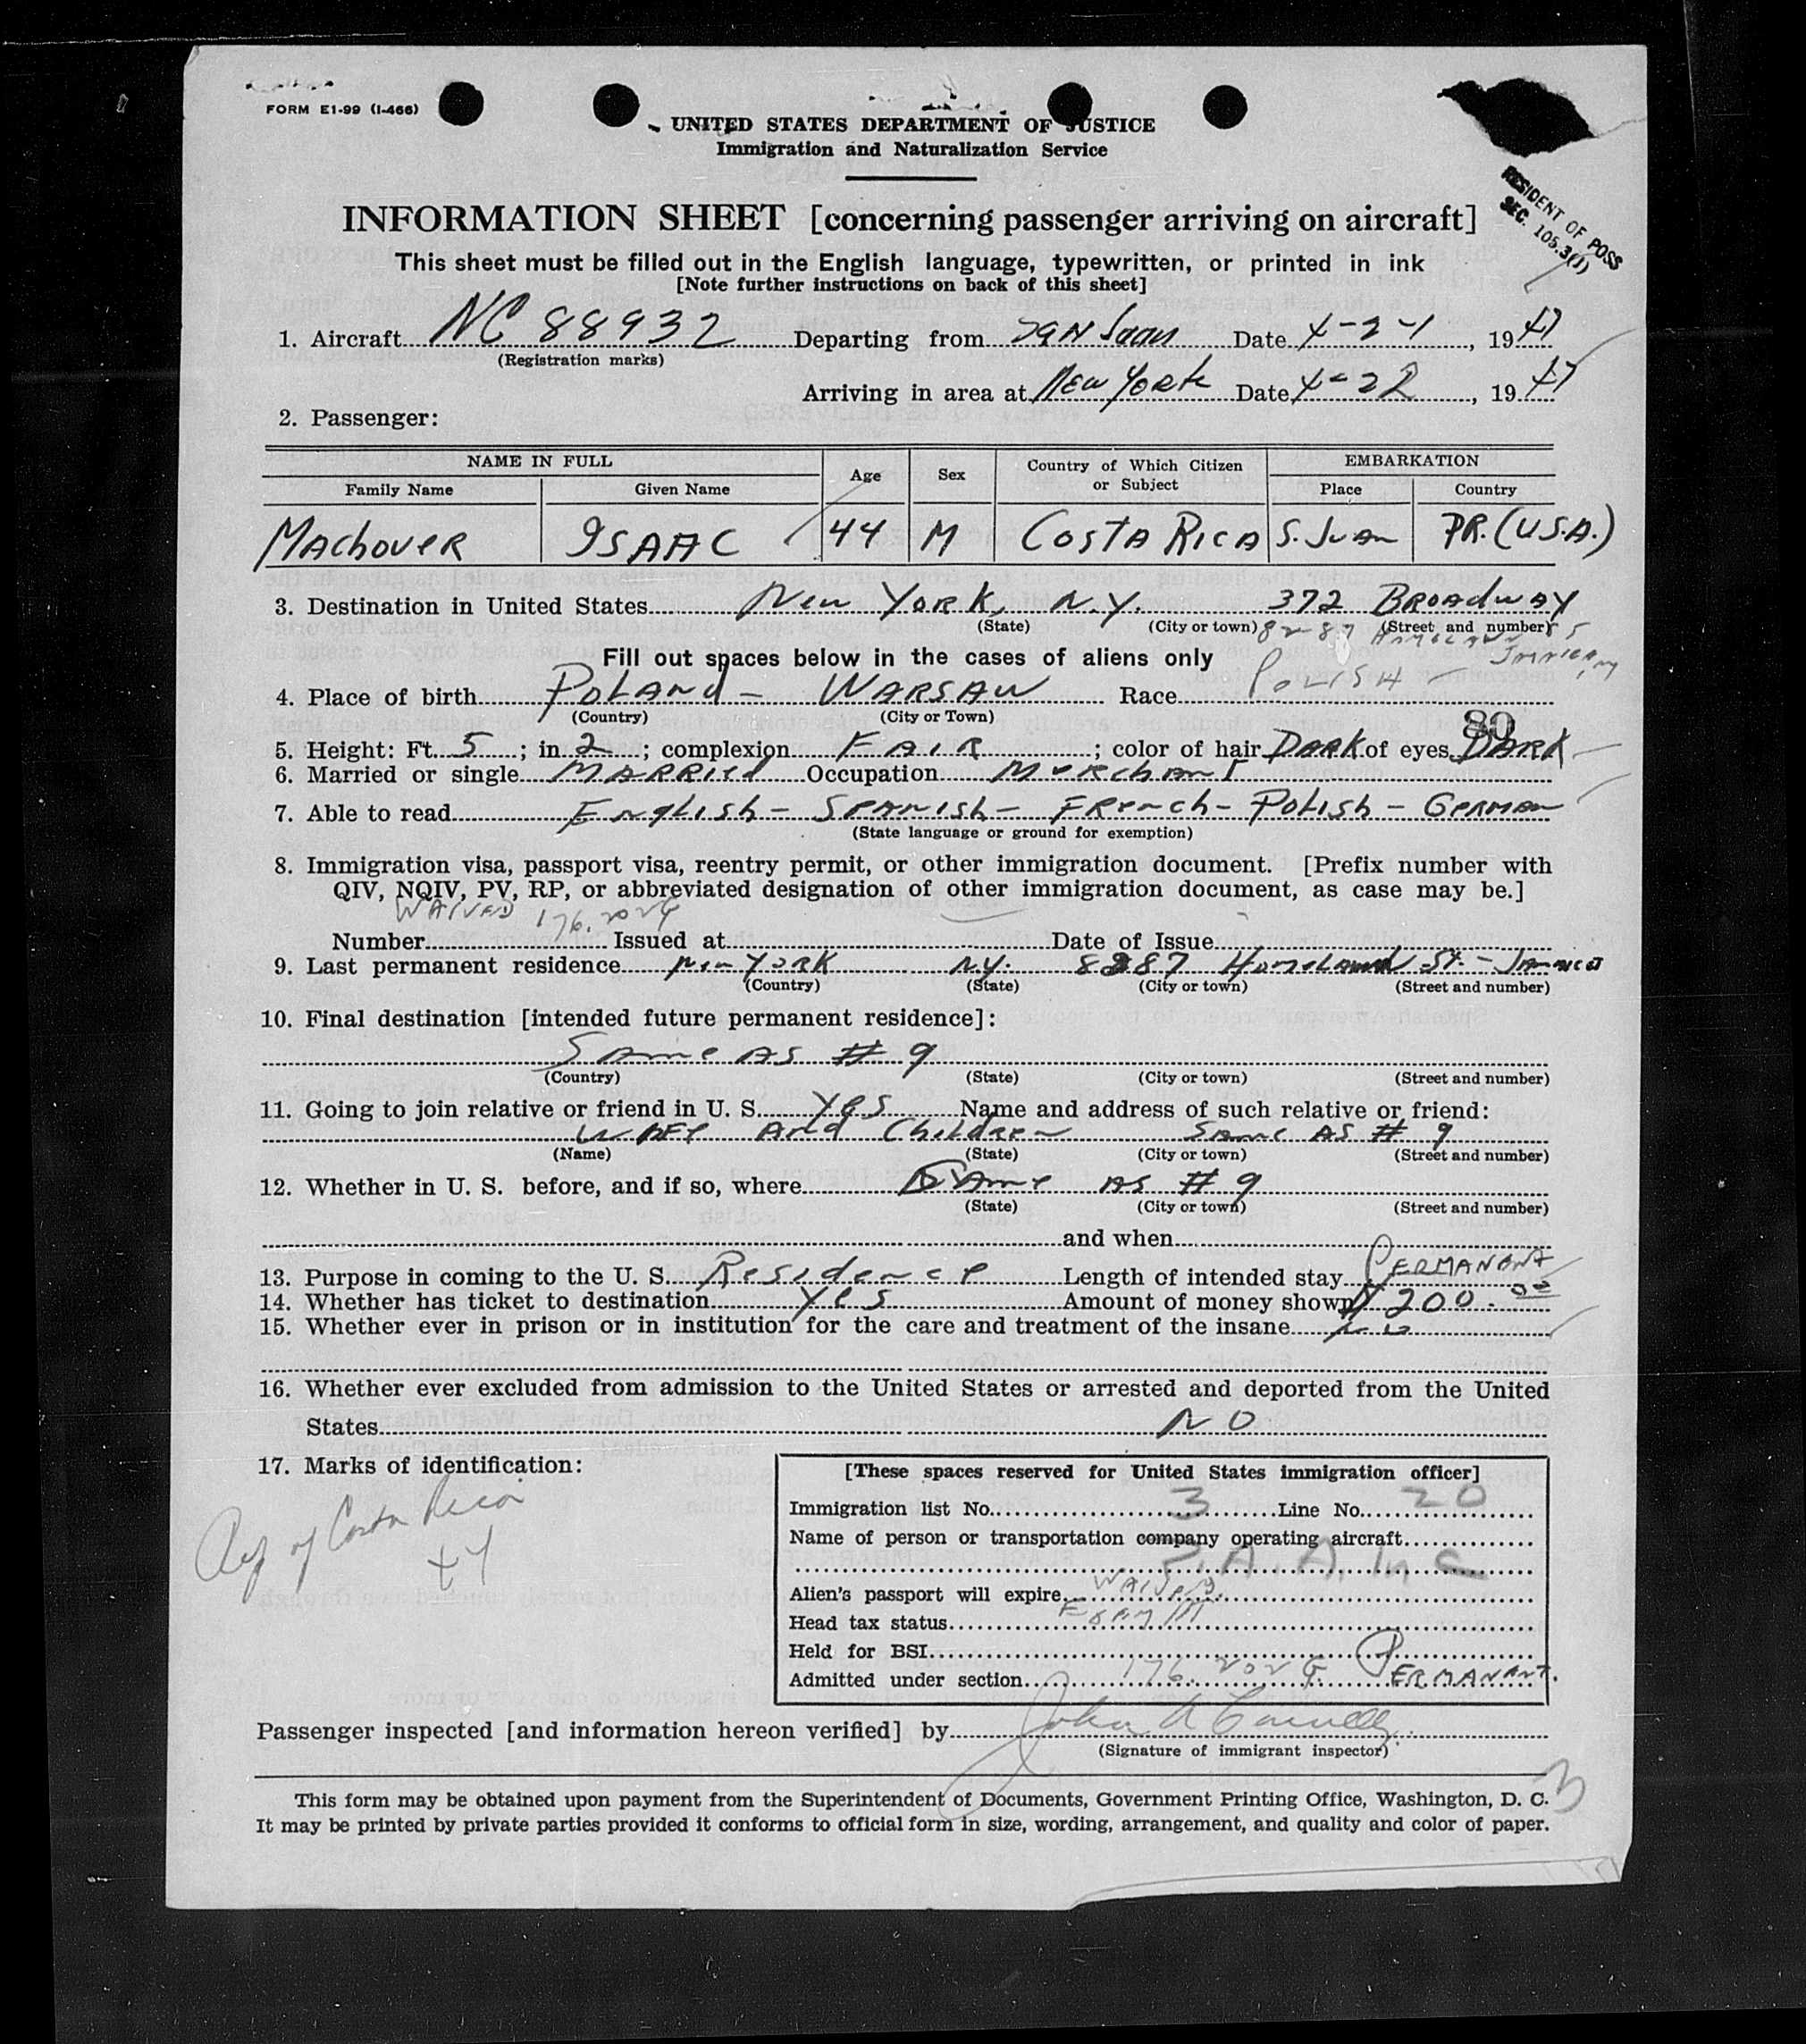 FORM E1-99 (I-466)
UNITED STATES DEPARTMENT OF JUSTICE
Immigration and Naturalization Service
RESIDENT OF POSS
SEC. 105.3(J)
INFORMATION SHEET [concerning passenger arriving on aircraft]
This sheet must be filled out in the English language, typewritten, or printed in ink
[Note further instructions on back of this sheet]
1. Aircraft NC 88932 Departing from San Juan Date 4-21, 1947
(Registration marks)
Arriving in area at New York Date 4-22, 1947
2. Passenger:
NAME IN FULL Age Sex Country of Which Citizen or Subject EMBARKATION
Family Name Given Name Place Country
MACHOVER ISAAC 44 M COSTA RICA S. JUAN P.R. (U.S.A.)
3. Destination in United States New York, N.Y. 372 Broadway
(State) (City or town) (Street and number)
82-87
Fill out spaces below in the cases of aliens only
4. Place of birth Poland - WARSAW Race POLISH
(Country) (City or Town)
80
5. Height: Ft. 5; in 2; complexion FAIR; color of hair DARK of eyes DARK
6. Married or single MARRIED Occupation Merchant
7. Able to read English - Spanish - French - Polish - German
(State language or ground for exemption)
8. Immigration visa, passport visa, reentry permit, or other immigration document. [Prefix number with
QIV, NQIV, PV, RP, or abbreviated designation of other immigration document, as case may be.]
WAIVED 176.202G
Number Issued at Date of Issue
9. Last permanent residence New York N.Y. 8287 Homelawn St. - Jamaica
(Country) (State) (City or town) (Street and number)
10. Final destination [intended future permanent residence]:
Same as # 9
(Country) (State) (City or town) (Street and number)
11. Going to join relative or friend in U. S. Yes Name and address of such relative or friend:
Wife And Children Same as # 9
(Name) (State) (City or town) (Street and number)
12. Whether in U. S. before, and if so, where Same as # 9
(State) (City or town) (Street and number)
and when
13. Purpose in coming to the U. S. Residence Length of intended stay PERMANENT
14. Whether has ticket to destination Yes Amount of money shown $ 200.00
15. Whether ever in prison or in institution for the care and treatment of the insane No
16. Whether ever excluded from admission to the United States or arrested and deported from the United
States NO
17. Marks of identification:
Rep of Costa Rica
[These spaces reserved for United States immigration officer]
Immigration list No. 3 Line No. 20
Name of person or transportation company operating aircraft
P.A.A. Inc
Alien's passport will expire WAIVED
Head tax status
Held for BSI
Admitted under section 176.202G PERMANENT.
Passenger inspected [and information hereon verified] by John A Connelly
(Signature of immigrant inspector)
3
This form may be obtained upon payment from the Superintendent of Documents, Government Printing Office, Washington, D. C.
It may be printed by private parties provided it conforms to official form in size, wording, arrangement, and quality and color of paper.